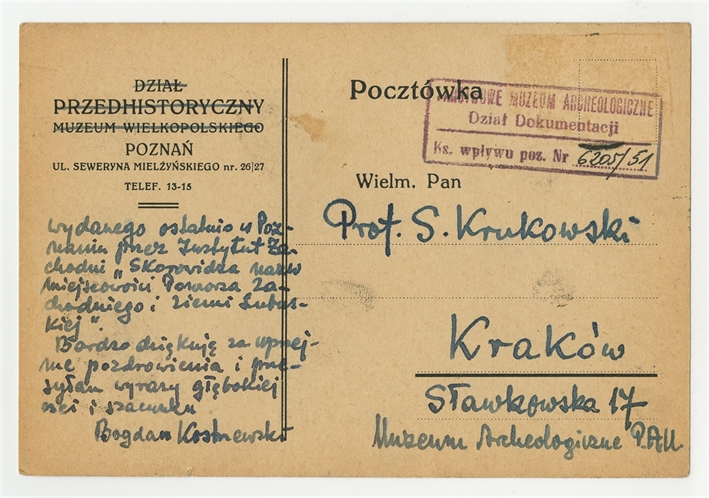 DZIAŁ
PRZEDHISTORYCZNY
MUZEUM WIELKOPOLSKIEGO
POZNAŃ
UL. SEWERYNA MIELŻYŃSKIEGO nr. 26|27
TELEF. 13-15
wydanego ostatnio w Poz-
naniu przez Instytut Za-
chodni „Skorowidza nazw
miejscowości Pomorza Za-
chodniego i Ziemi Lubus-
kiej".
Bardzo dziękuję za uprzej-
me pozdrowienia i prze-
syłam wyrazy głębokiej
czci i szacunku
Bogdan Kostrzewski
Pocztówka
PAŃSTWOWE MUZEUM ARCHEOLOGICZNE
Dział Dokumentacji
Ks. wpływu poz. Nr 6205/51
Wielm. Pan
Prof. S. Krukowski
Kraków
Sławkowska 17
Muzeum Archeologiczne P.A.U.